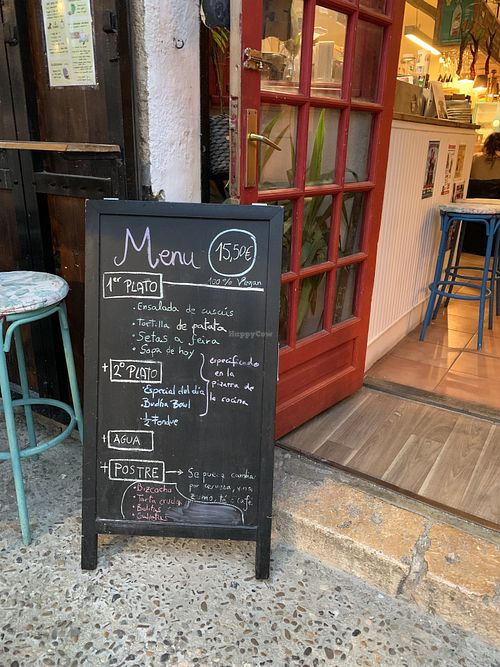 Menu
15,50€
100% Vegan
1er PLATO
• Ensalada de cuscús
• Tortilla de patata
• Setas a feira
• Sopa de hoy
+ 2º PLATO
• Especial del día
• Buddha Bowl
• ½ Fondue
especificado
en la
pizarra de
la cocina
+ AGUA
+ POSTRE → Se puede cambiar
por cerveza, vino
zumo, té, café
• Bizcocho
• Tarta cruda
• Bolitas
HappyCow